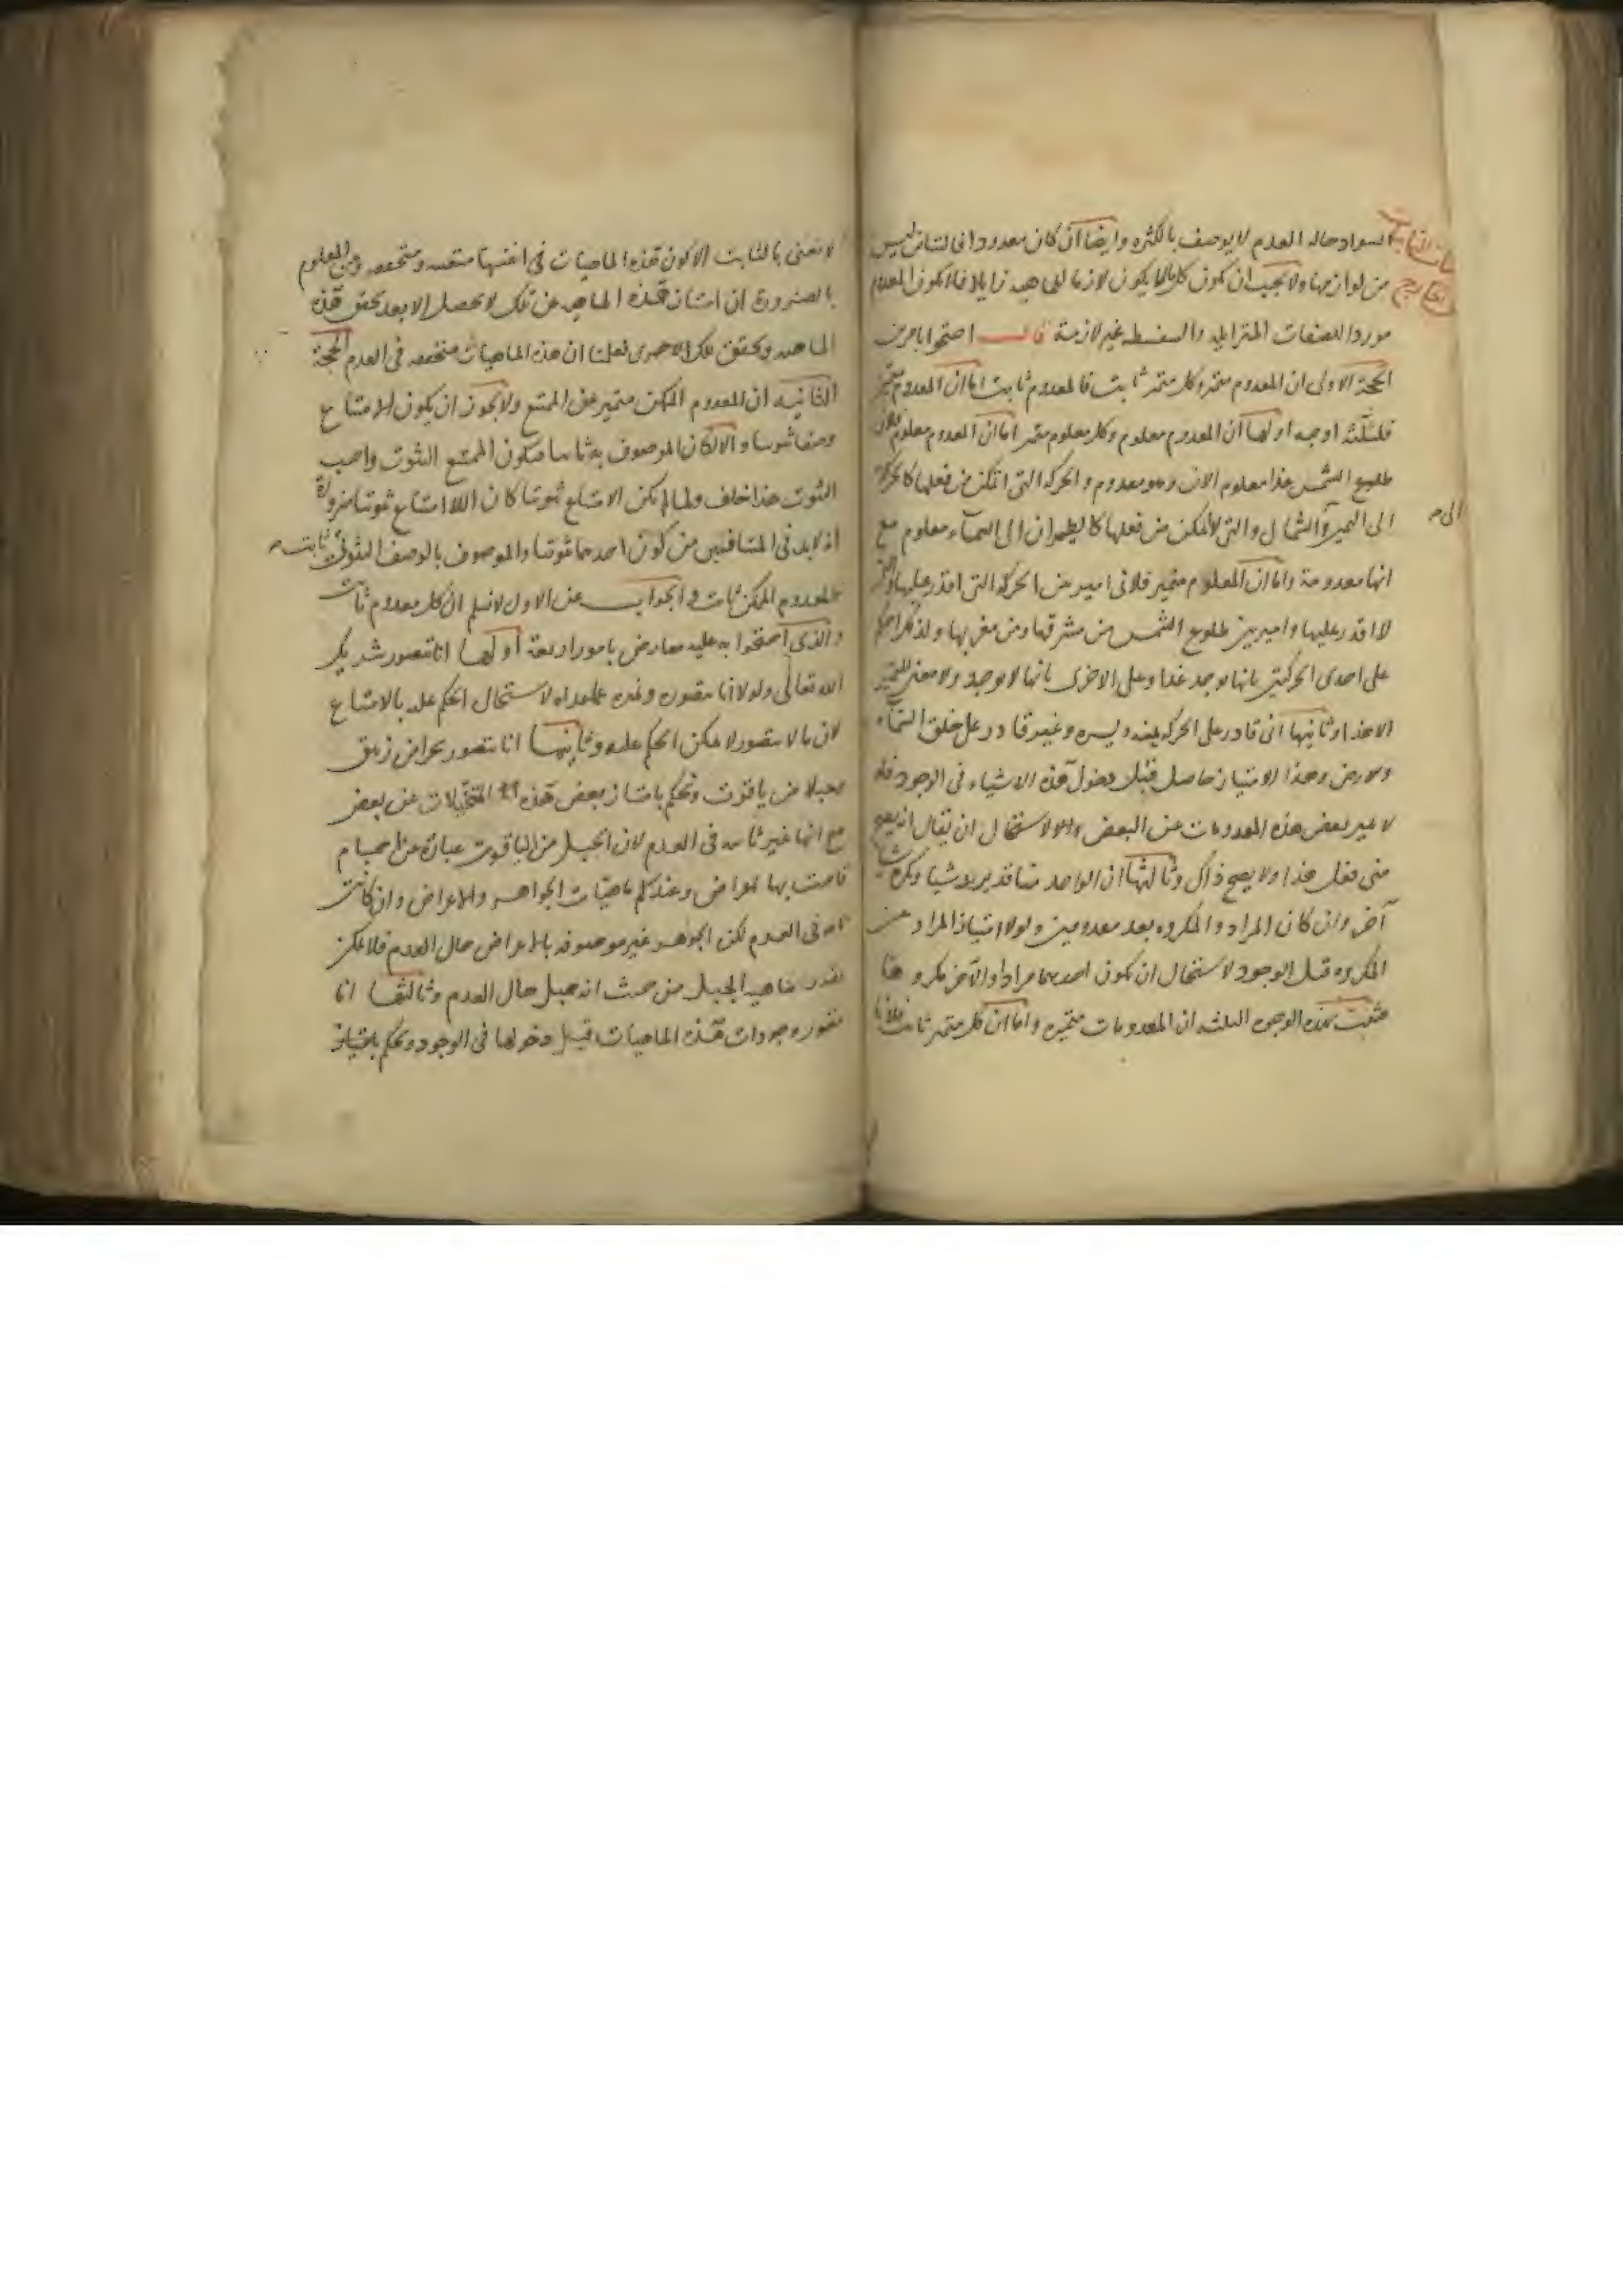 السواد حاله العدم لا يوصف بالكثره وايضا ان كان معدودا فالتباين ليس
من لوازمها ولا يجب ان يكون كل ما لا يكون لازما للماهية زايلا فلا يكون المعدوم
موردا للصفات المتزايله والسفسطه غير لازمة قال احتجوا بامرين
الحجة الاولى ان المعدوم متميز وكل متميز ثابت فالمعدوم ثابت اما ان المعدوم متميز
فلثلثة اوجه اولها ان المعدوم معلوم وكل معلوم متميز اما ان المعدوم معلوم فلان
طلوع الشمس غدا معلوم الان وهو معدوم والحركه التى اتمكن من فعلها كالحركة
الى اليمين والشمال والتى لا اتمكن من فعلها كالطيران الى السماء معلوم مع
الى
انها معدومة واما ان المعلوم متميز فلانى اميز بين الحركه التى اقدر عليها والتى
لا اقدر عليها واميز بين طلوع الشمس من مشرقها ومن مغربها ولذلك احكم
على احدى الحركتين بانها توجد غدا وعلى الاخرى بانها لا توجد ولا معنى للتميز
الا هذا وثانيها انى قادر على الحركه يمنه ويسره وغير قادر على خلق السماء
والارض وهذا الامتياز حاصل قبل دخول هذه الاشياء فى الوجود فلو
لا تميز بعض هذه المعدومات عن البعض والا لاستحال ان يقال انه يصح
منى فعل هذا ولا يصح ذاك وثالثها ان الواحد منا قد يريد شيا ويكره شيا
آخر وان كان المراد والمكروه بعد معدومين ولولا امتياز المراد عن
المكروه قبل الوجود لاستحال ان يكون احدهما مرادا والآخر مكروها
فثبت بهذه الوجوه الثلثه ان المعدومات متميزه واما ان كل متميز ثابت فلانا
لا نعنى بالثابت الا كون هذه الماهيات فى انفسها متعينه ومتحققه ومن المعلوم
بالضرورة ان امتياز هذه الماهيه عن تلك لا يحصل الا بعد تحقق هذه
الماهيه وتحقق تلك الاخرى فعلمنا ان هذه الماهيات متحققه فى العدم الحجة
الثانيه ان المعدوم الممكن متميز عن الممتنع ولا يجوز ان يكون الامتناع
وصفا ثبوتيا والا لكان الموصوف به ثابتا فيكون الممتنع الثبوت واجب
الثبوت هذا خلف ولما لم يكن الامتناع ثبوتيا كان اللاامتناع ثبوتيا ضرورة
اذ لا بد فى المتناقضين من كون احدهما ثبوتيا والموصوف بالوصف الثبوتى ثابت
فالمعدوم الممكن ثابت والجواب عن الاول لا نسلم ان كل معدوم ثابت
والذى احتجوا به عليه معارض بامور اربعة اولها انا نتصور شريك
الله تعالى ولولا انا نتصوره ونميزه عما عداه لاستحال الحكم عليه بالامتناع
لان ما لا يتصور لا يمكن الحكم عليه وثانيها انا نتصور بحرا من زيبق
وجبلا من ياقوت ونحكم بامتياز بعض هذه المتخيلات عن بعض
مع انها غير ثابته فى العدم لان الجبل من الياقوت عبارة عن اجسام
قامت بها اعراض وعندكم ماهيات الجواهر والاعراض وان كانت
ثابته فى العدم لكن الجواهر غير موصوفه بالاعراض حال العدم فلا يمكن
تقدير ماهية الجبل من حيث انه جبل حال العدم وثالثها انا
نتصور وجودات هذه الماهيات قبل دخولها فى الوجود ونحكم بامتياز